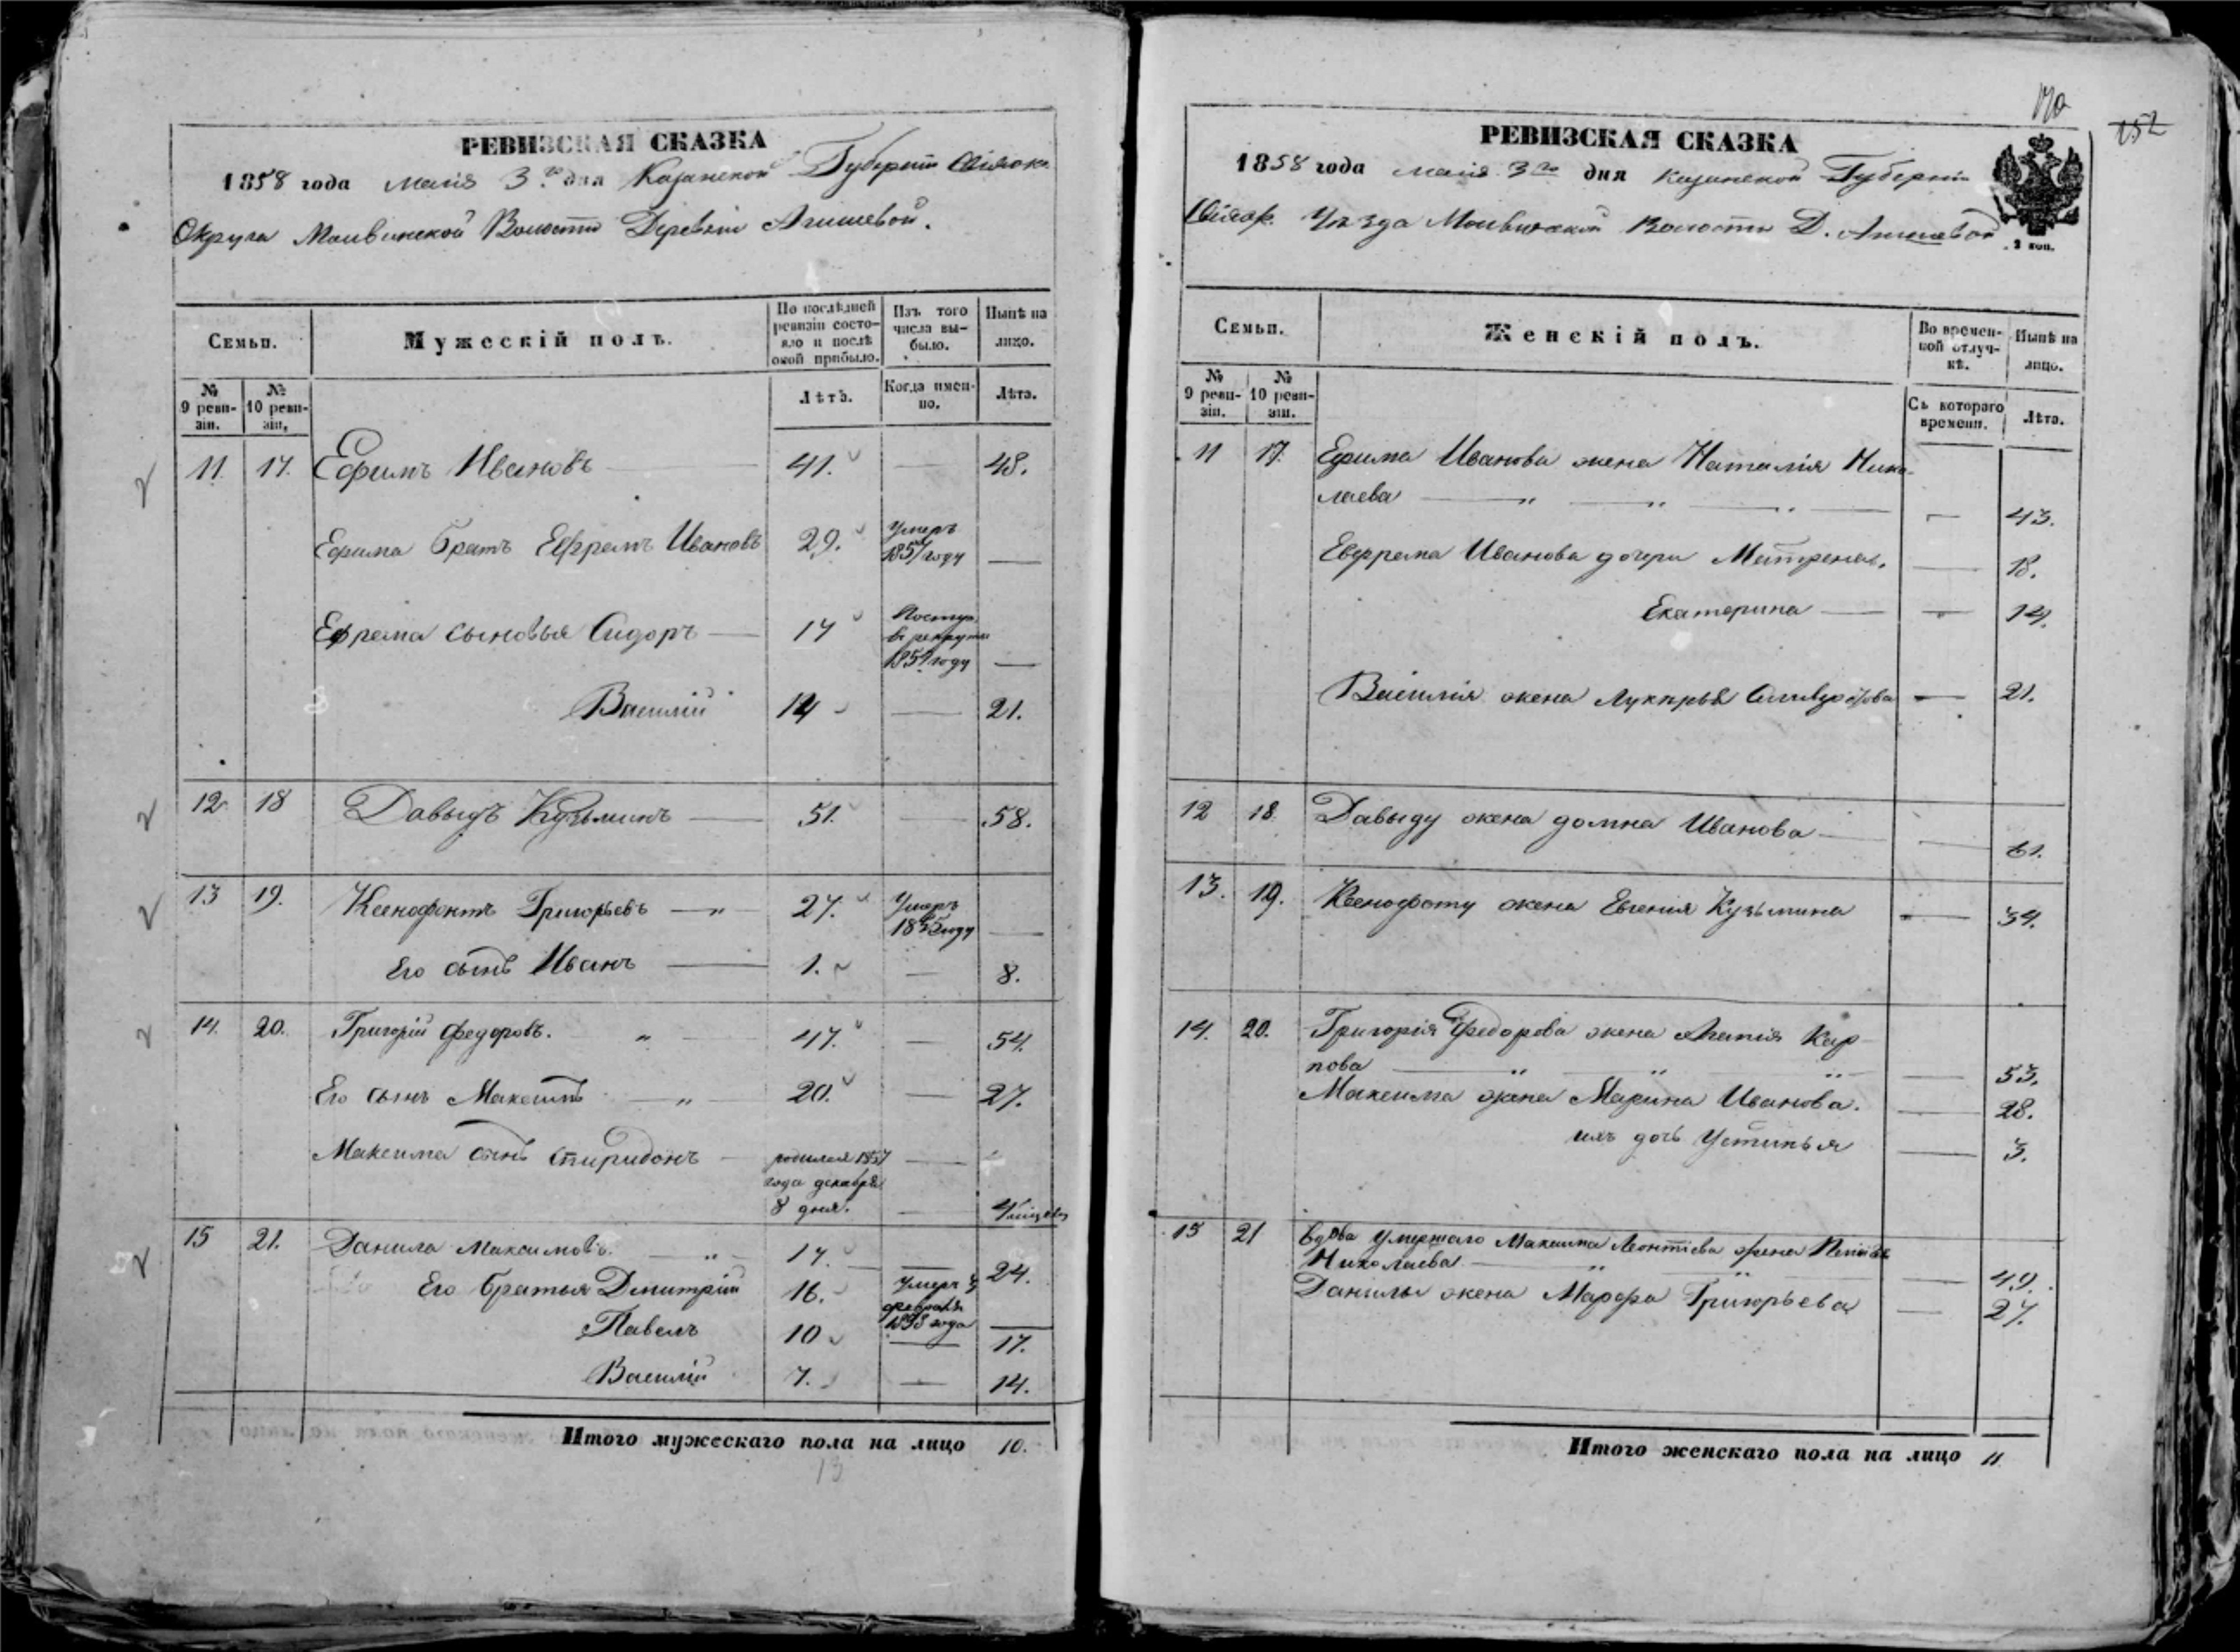 РЕВИЗСКАЯ СКАЗКА
1858 года маія 3го дня Казанской Губерніи Свіяжск.
Округа Моивинской Волости Деревни Агишевой.
Семьи.
Мужескій полъ.
По послѣдней ревизіи состояло и послѣ оной прибыло.
Изъ того числа выбыло.
Нынѣ на лицо.
№ 9 ревизіи.
№ 10 ревизіи,
Лѣтъ.
Когда именно.
Лѣта.
11. 17. Ефимъ Ивановъ 41. 48.
Ефима братъ Ефремъ Ивановъ 29. Умеръ 1857 году
Ефрема сыновья Сидоръ 17 Поступ. въ рекруты 185 году
Василій 14 21.
12 18 Давыдъ Кузьминъ 51. 58.
13 19. Ксенофонтъ Григорьевъ 27. Умеръ 1855 году
Его сынъ Иванъ 1. 8.
14. 20. Григорій Федоровъ. 47. 54.
Его сынъ Максимъ 20. 27.
Максима сынъ Спиридонъ родился 1857
года декабря
8 дня. 4 месяцев
15 21. Данила Максимовъ. 17. 24.
Его братья Дмитрій 16. Умеръ февраля 1858 года
Павелъ 10 17.
Василій 7. 14.
Итого мужескаго пола на лицо 10.
13
152
РЕВИЗСКАЯ СКАЗКА
1858 года маія 3го дня Казанской Губерніи
Свіяж. Уѣзда Моивинской Волости Д. Агишевой
2 коп.
Семьи.
Женскій полъ.
Во временной отлучкѣ.
Нынѣ на лицо.
№ 9 ревизіи.
№ 10 ревизіи.
Съ котораго времени.
Лѣта.
11 17. Ефима Иванова жена Наталія Нико-
лаева 43.
Евфрема Иванова дочери Матрена. 18.
Екатерина 14.
Василія жена Лукерья 21.
12 18. Давыду жена домна Иванова 61.
13. 19. Ксенофонту жена Евгенія Кузьмина 34.
14. 20. Григорія Федорова жена Агапія Кар-
пова 53.
Максима жена Марина Иванова. 28.
ихъ дочь Устинья 3.
15 21 вдова умершаго Максима Леонтіева жена
Николаева 49.
Данилы жена Марфа Григорьева 27.
Итого женскаго пола на лицо 11